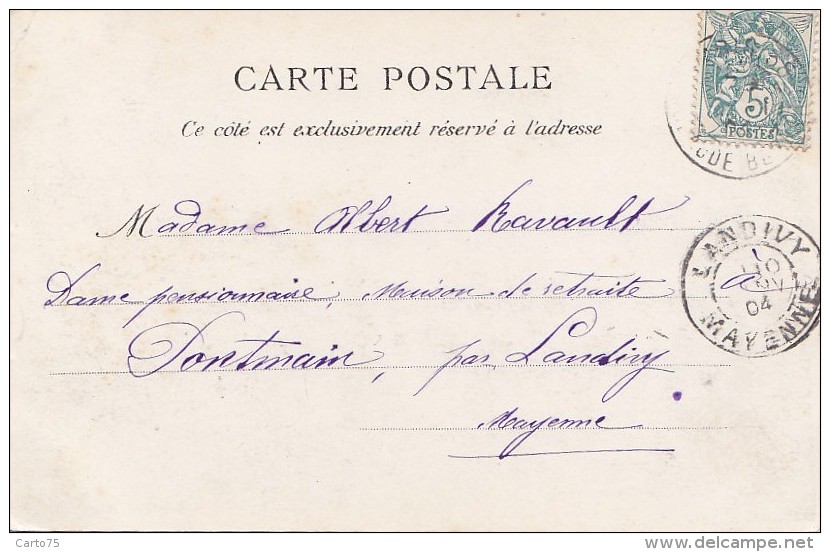 CARTE POSTALE
Ce côté est exclusivement réservé à l'adresse
5c
POSTES
RUE
LANDIVY
10
04
MAYENNE
Madame Albert Ravault
Dame pensionnaire, Maison de retraite à
Pontmain, par Landivy
Mayenne
Carto75
www.delcampe.net